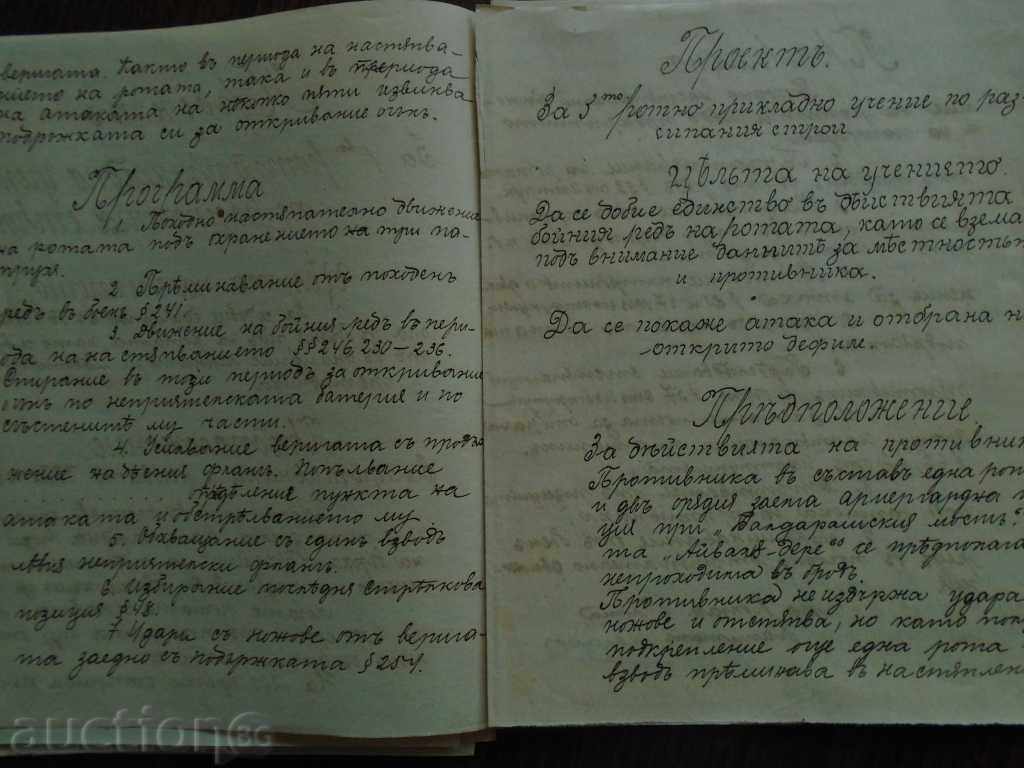 веригата. Както въ периода на настѫпва-
нието на ротата, така и въ периода
на атаката на неколко пѫти извиква
подръжката си за откривание огънь.
Программа
1. Походно настѫпателно движение
на ротата подъ охранението на три па-
трули.
2. Прѣминавание отъ походенъ
редъ въ боенъ § 241.
3. Движение на бойния редъ въ пери-
ода на настѫпванието §§ 246, 230-236.
Спирание въ този периодъ за откривание
огънь по неприятелската батерия и по
състенитѣ му части.
4. Усилвание веригата съ продъл-
жение на дѣсния флангъ. Попълвание
опрѣдѣление пункта на
атаката и обстрѣлванието му.
5. Обхващание съ единъ взводъ
лѣвия неприятелски флангъ.
6. Избирание послѣдня стрѣлкова
позиция § 48.
7. Ударъ съ ножове отъ верига-
та заедно съ подържката § 254.
Проектъ.
За 3то ротно прикладно учение по раз
сипания строй
Цѣльта на учението.
Да се добие единство въ дѣйствията
бойния редъ на ротата, като се взема
подъ внимание даннитѣ за мѣстностьта
и противника.
Да се покаже атака и отбрана на
открито дефиле.
Прѣдположение
За дѣйствията на противник
Противника въ съставъ една рота
и двѣ орѫдия заета ариергардна по
ция при мостъ".
та "Айвалъ-Дере" се прѣдполага
непроходима въ бродъ.
Противника не издържа удара
ножове и отстѫпва, но като полу
подкрепление още една рота
взводъ прѣминава въ настѫпление
auction.bg